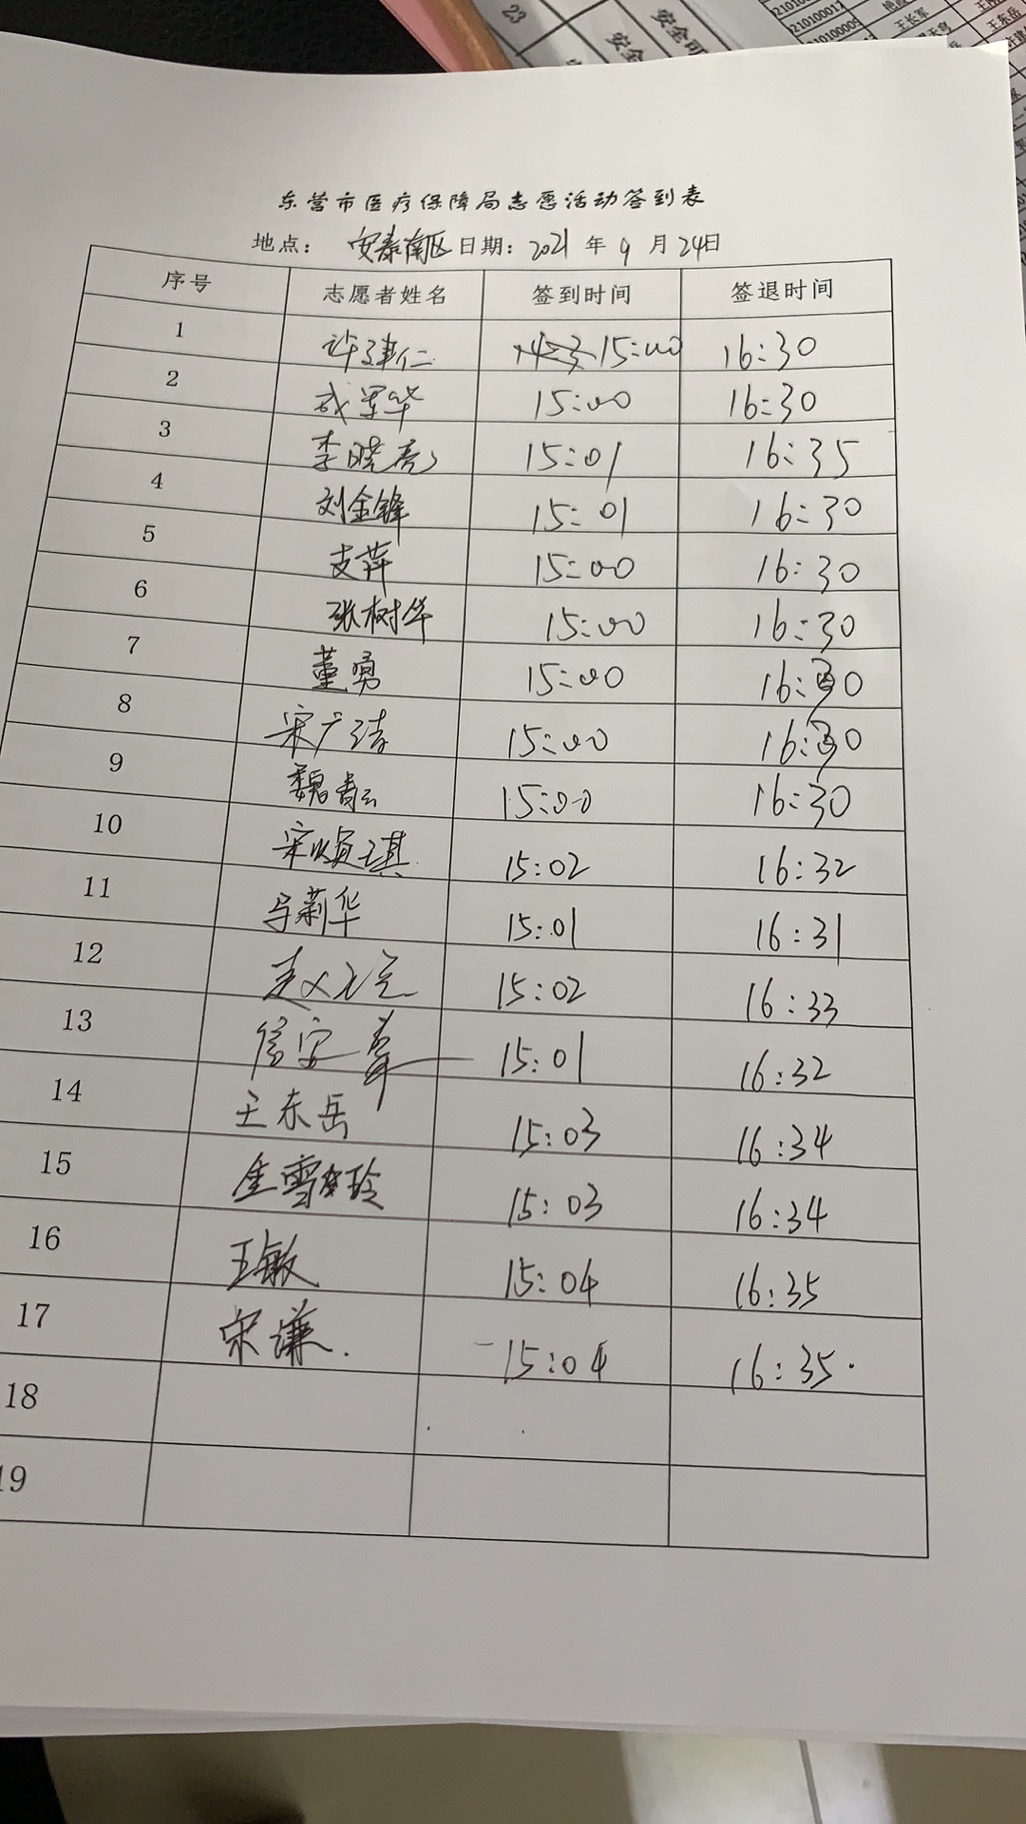 23
安全
安全司
210100017
210100009
王长军
王东岳
东营市医疗保障局志愿活动签到表
地点： 安泰南区 日期：2021 年 9 月 24日
序号 志愿者姓名 签到时间 签退时间
1 许建仁 15:00 16:30
2 15:00 16:30
3 李晓亮 15:01 16:35
4 刘金锋 15:01 16:30
5 支萍 15:00 16:30
6 张树华 15:00 16:30
7 董勇 15:00 16:30
8 宋广洁 15:00 16:30
9 魏青云 15:00 16:30
10 15:02 16:32
11 马莉华 15:01 16:31
12 15:02 16:33
13 15:01 16:32
14 王东岳 15:03 16:34
15 15:03 16:34
16 王敏 15:04 16:35
17 宋谦. 15:04 16:35.
18
19